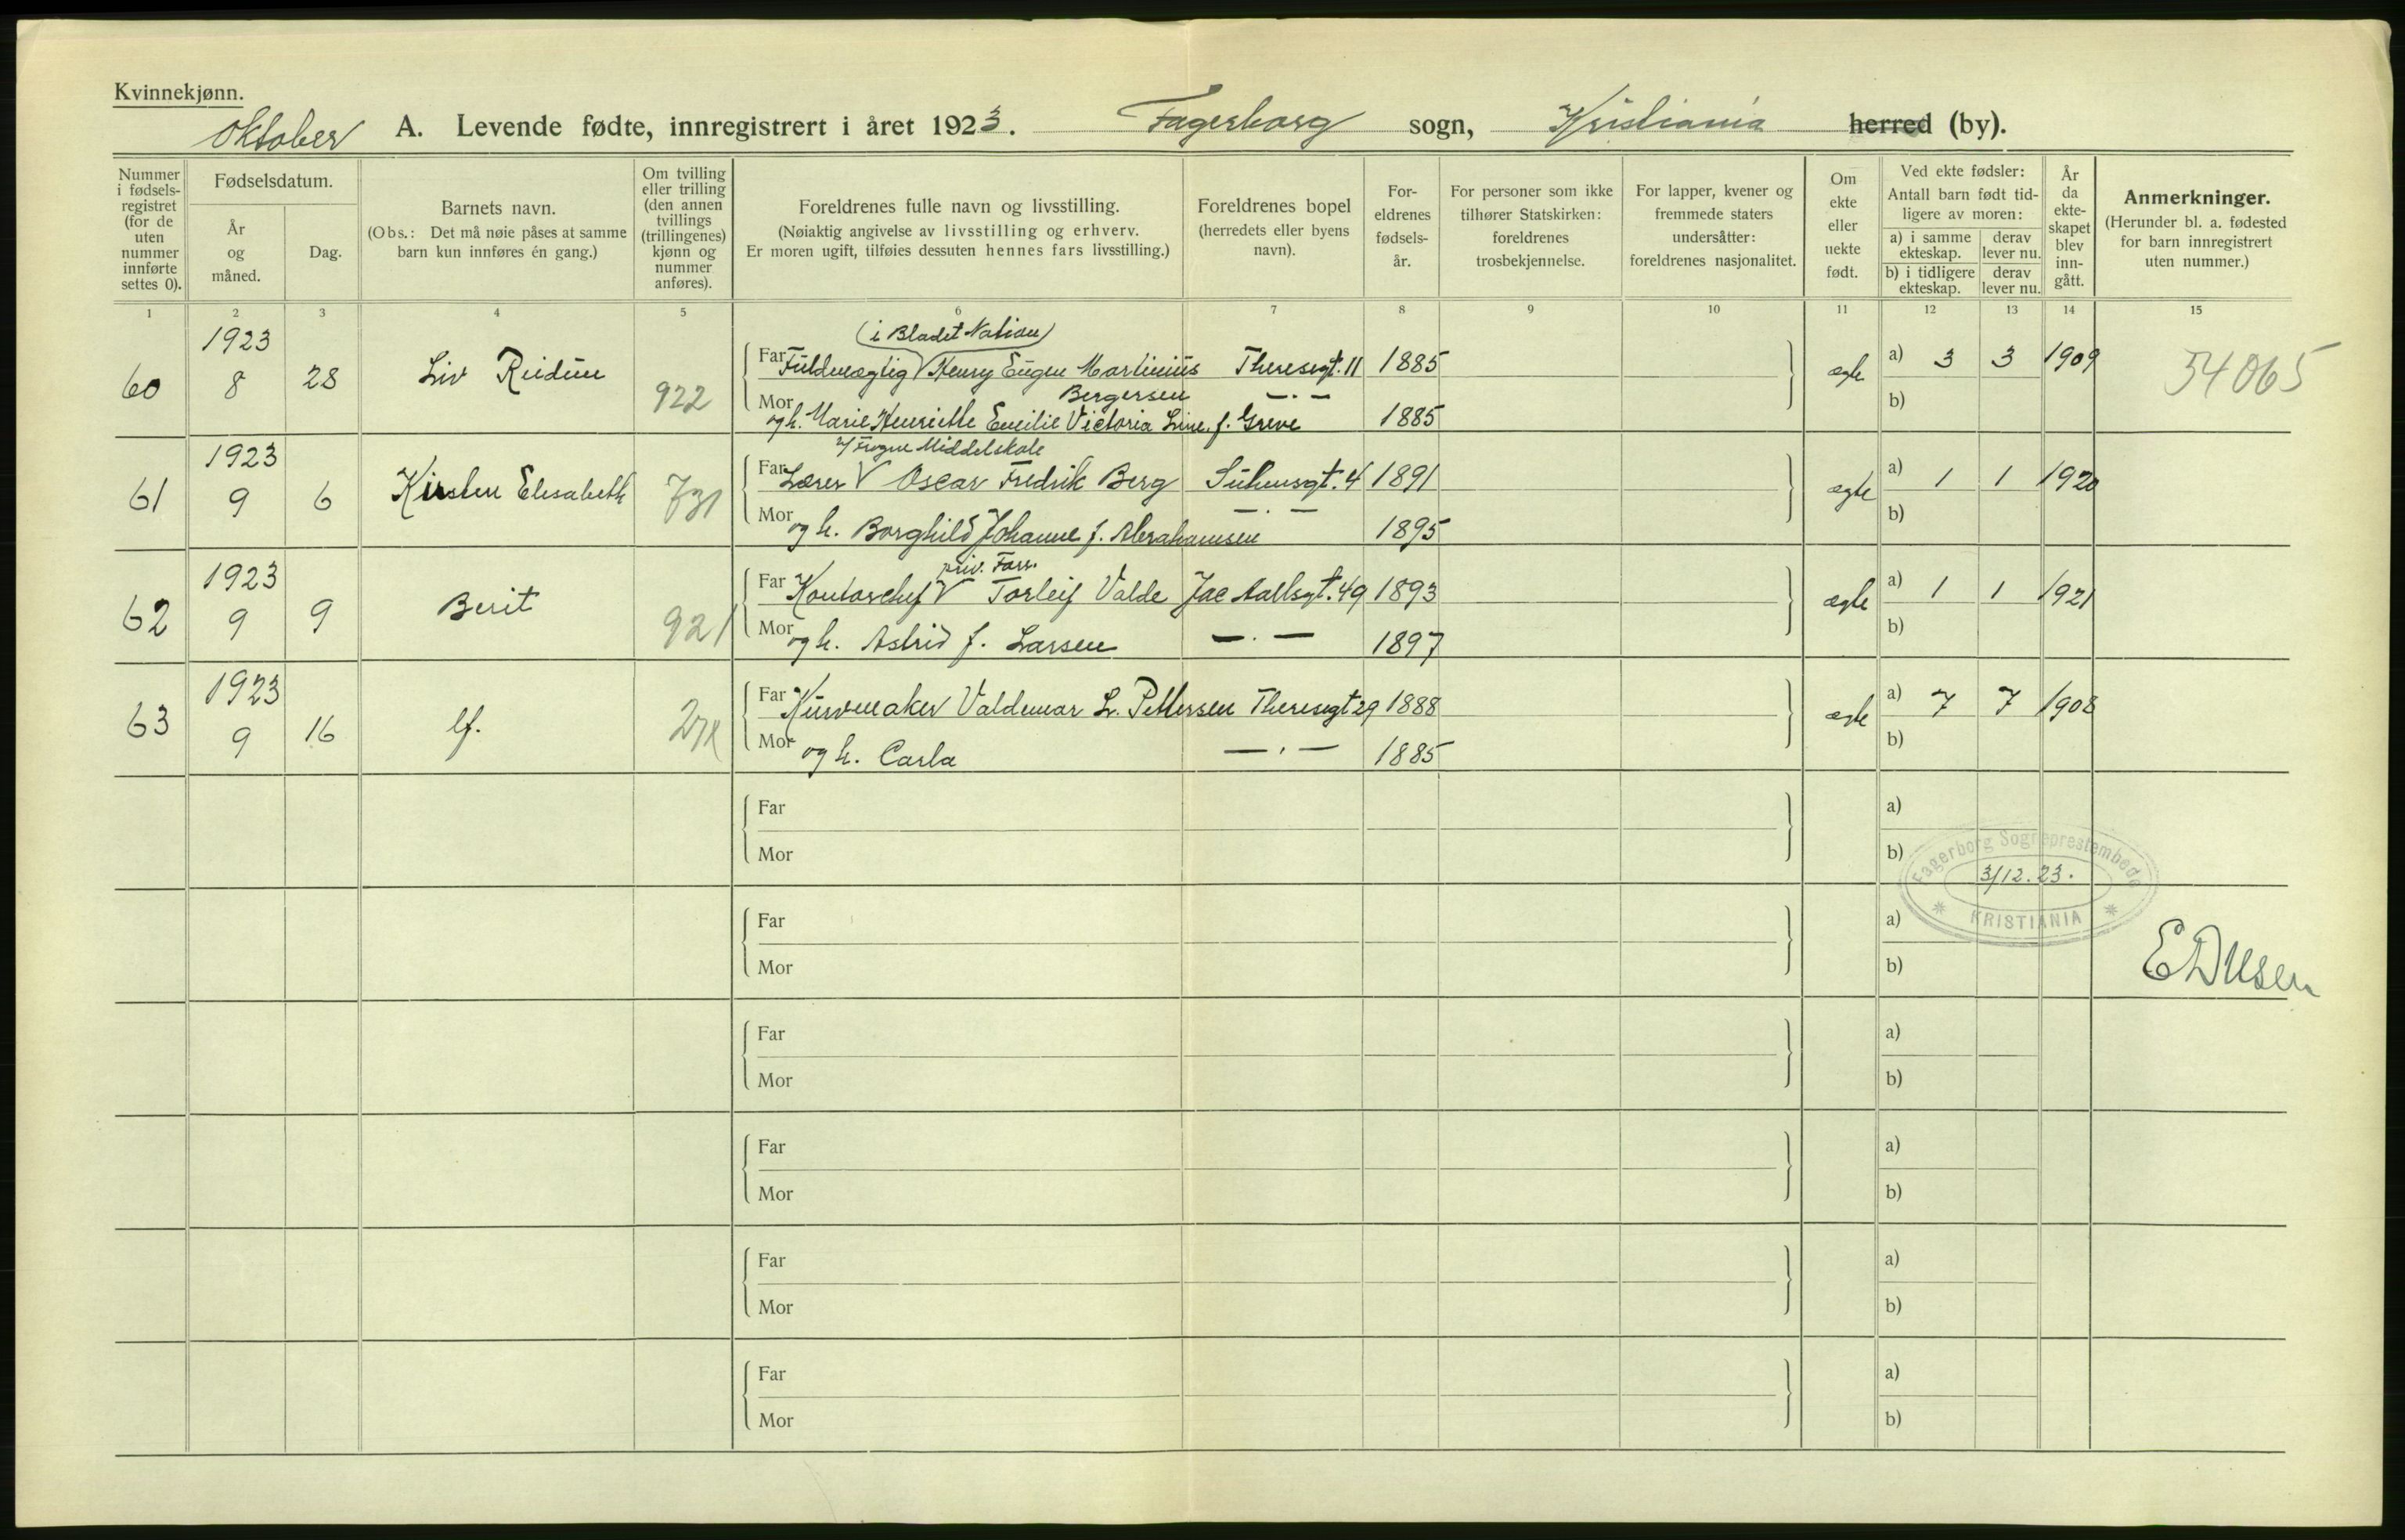 Kvinnekjønn.
Oktober A. Levende fødte, innregistrert i året 1923. Fagerborg sogn, Kristiania herred (by).
Nummer i fødsels-registret (for de uten nummer innførte settes 0).
Fødselsdatum.
År og måned.
Dag.
Barnets navn.
(Obs.: Det må nøie påses at samme barn kun innføres én gang.)
Om tvilling eller trilling (den annen tvillings (trillingenes) kjønn og nummer anføres).
Foreldrenes fulle navn og livsstilling.
(Nøiaktig angivelse av livsstilling og erhverv.
Er moren ugift, tilføies dessuten hennes fars livsstilling.)
Foreldrenes bopel
(herredets eller byens navn).
For-eldrenes fødsels-år.
For personer som ikke tilhører Statskirken: foreldrenes trosbekjennelse.
For lapper, kvener og fremmede staters undersåtter: foreldrenes nasjonalitet.
Om ekte eller uekte født.
Ved ekte fødsler:
Antall barn født tid-ligere av moren:
a) i samme ekteskap.
derav lever nu.
b) i tidligere ekteskap.
derav lever nu.
År da ekte-skapet blev inn-gått.
Anmerkninger.
(Herunder bl. a. fødested for barn innregistrert uten nummer.)
1 2 3 4 5 6 7 8 9 10 11 12 13 14 15
1923 (i Bladet Nation)
60 8 28 Liv Reidun 922 Far Fuldmægtig V Henry Eugen Martinius Bergersen Theresegt. 11 1885 ægte a) 3 3 1909 54065
Mor og h. Marie Henriette Emilie Victoria Line f. Greve —.— 1885 b)
1923 v/ Frogne Middelskole
61 9 6 Kirsten Elisabeth 731 Far Lærer V Oscar Fredrik Berg Suhmsgt. 4 1891 ægte a) 1 1 1920
Mor og h. Borghild Johanne f. Abrahamsen —.— 1895 b)
1923 priv. Forr.
62 9 9 Berit 921 Far Kontorchef V Torleif Valde Jac Aallsgt. 49 1893 ægte a) 1 1 1921
Mor og h. Astrid f. Larsen —.— 1897 b)
1923
63 9 16 Far Kurvmaker Valdemar L. Pettersen Theresegt 29 1888 ægte a) 7 7 1908
Mor og h. Carla —.— 1885 b)
Far a)
Mor b)
Fagerborg Sogneprestembede
3/12.23.
KRISTIANIA
Far a)
Mor b)
Far a)
Mor b)
Far a)
Mor b)
Far a)
Mor b)
Far a)
Mor b)